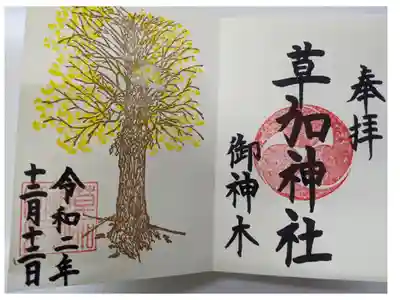 奉拝
草加神社
御神木
令和二年
十二月十二日